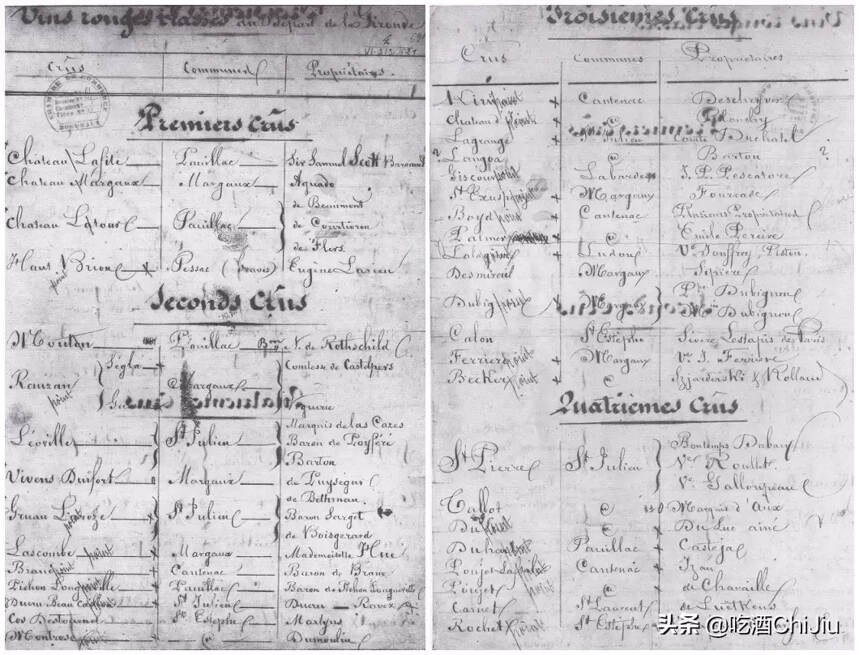 Vins rouges classés du Départ. de la Gironde
Crûs Communes Propriétaires
Premiers Crûs
Chateau Lafite Pauillac Sir Samuel Scott
Chateau Margaux Margaux Aguado
de Beaumont
Chateau Latour Pauillac de Courtivron
de Flers
Haut Brion Pessac (Graves) Eugène Larrieu
point
Seconds Crûs
Mouton Pauillac Bon N. de Rothschild
Ségla Comtesse de Castelpers
Rauzan Margaux
point
Viguerie
Marquis de las Cazes
Léoville St Julien Baron de Poyféré
Barton
Vivens Durfort Margaux de Puysegur
de Bethman
Gruau Laroze St Julien Baron Sarget
de Boisgerard
Lascombe Margaux Mademoiselle Hue
point
Brane Cantenac Baron de Brane
point
Pichon Longueville Pauillac Baron de Pichon Longueville
Ducru Beau Caillou St Julien Ducru Ravez
Cos Destournel St Estèphe Martyns
Montrose Dumoulin
Troisièmes Crûs
Crus Communes Propriétaires
Kirwan Cantenac Deschryver
Chateau d'Issan Blanchy
Lagrange St Julien Comte Duchatel
Langoa Barton
Giscours Labarde J. P. Pescatore
St Exupéry Margaux Fourcade
Boyd Cantenac Plusieurs Propriétaires
Palmer Emile Pereire
Lalagune Ludon Ve Jouffroy Piston
Desmirail Margaux Sipière
Dubignon Margaux Phe Dubignon
Mce Dubignon
Calon St Estèphe Sèvère Lestapis de Paris
Ferrière Margaux Ve J. Ferrière
Becker Szjarderski & Rolland
point
Quatrièmes Crûs
Bontemps Dubarry
St Pierre St Julien Ve Roullet
Ve Galloupeau
Talbot Marquis d'Aux
Du Luc Du Luc ainé
Duhart Pauillac Castéja
Poujet Lassale Cantenac Izan
Poujet de Chavaille
Carnet St Laurent de Luetkens
Rochet St Estèphe
头条 @吃酒ChiJiu